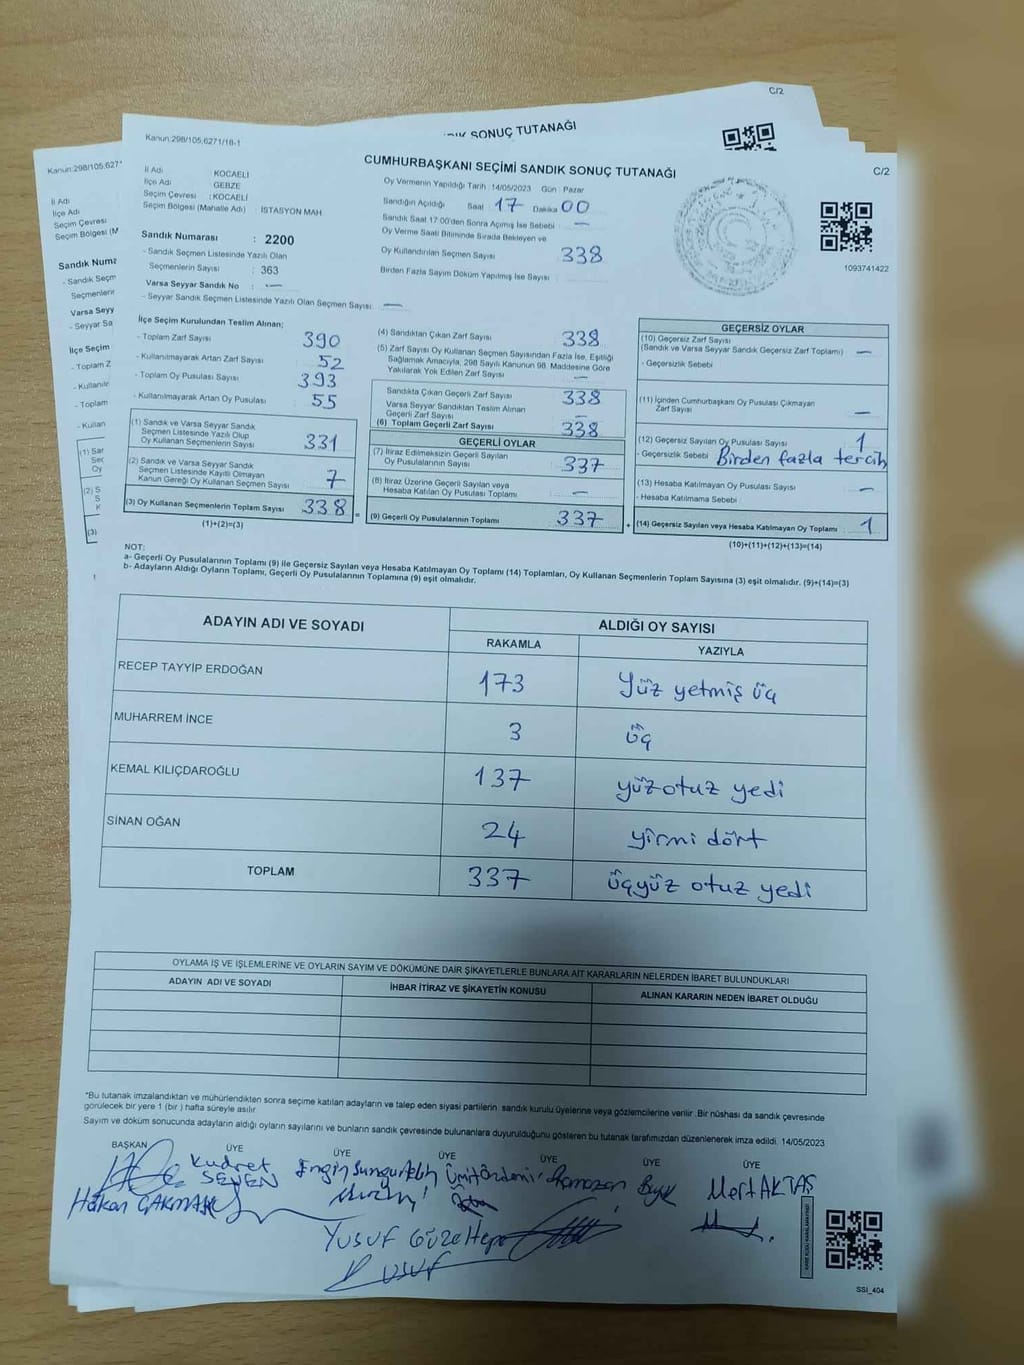 C/2
SONUÇ TUTANAĞI
Kanun:298/105,6271/18-1
CUMHURBAŞKANI SEÇİMİ SANDIK SONUÇ TUTANAĞI
C/2
İl Adı : KOCAELİ
İlçe Adı : GEBZE
Seçim Çevresi : KOCAELİ
Seçim Bölgesi (Mahalle Adı) : İSTASYON MAH.
Sandık Numarası : 2200
- Sandık Seçmen Listesinde Yazılı Olan
Seçmenlerin Sayısı : 363
Varsa Seyyar Sandık No : —
- Seyyar Sandık Seçmen Listesinde Yazılı Olan Seçmen Sayısı : —
Oy Vermenin Yapıldığı Tarih : 14/05/2023 Gün : Pazar
Sandığın Açıldığı Saat 17 Dakika 00
Sandık Saat 17:00'den Sonra Açılmış İse Sebebi : —
Oy Verme Saati Bitiminde Sırada Bekleyen ve
Oy Kullandırılan Seçmen Sayısı : 338
Birden Fazla Sayım Döküm Yapılmış İse Sayısı :
1093741422
İlçe Seçim Kurulundan Teslim Alınan;
- Toplam Zarf Sayısı : 390
- Kullanılmayarak Artan Zarf Sayısı : 52
- Toplam Oy Pusulası Sayısı : 393
- Kullanılmayarak Artan Oy Pusulası : 55
(1) Sandık ve Varsa Seyyar Sandık
Seçmen Listesinde Yazılı Olup
Oy Kullanan Seçmenlerin Sayısı : 331
(2) Sandık ve Varsa Seyyar Sandık
Seçmen Listesinde Kayıtlı Olmayan
Kanun Gereği Oy Kullanan Seçmen Sayısı : 7
(3) Oy Kullanan Seçmenlerin Toplam Sayısı : 338
(1)+(2)=(3)
(4) Sandıktan Çıkan Zarf Sayısı : 338
(5) Zarf Sayısı Oy Kullanan Seçmen Sayısından Fazla İse, Eşitliği
Sağlamak Amacıyla, 298 Sayılı Kanunun 98. Maddesine Göre
Yakılarak Yok Edilen Zarf Sayısı : —
Sandıkta Çıkan Geçerli Zarf Sayısı : 338
Varsa Seyyar Sandıktan Teslim Alınan
Geçerli Zarf Sayısı : —
(6) Toplam Geçerli Zarf Sayısı : 338
GEÇERLİ OYLAR
(7) İtiraz Edilmeksizin Geçerli Sayılan
Oy Pusulalarının Sayısı : 337
(8) İtiraz Üzerine Geçerli Sayılan veya
Hesaba Katılan Oy Pusulası Toplamı : —
(9) Geçerli Oy Pusulalarının Toplamı : 337
GEÇERSİZ OYLAR
(10) Geçersiz Zarf Sayısı
(Sandık ve Varsa Seyyar Sandık Geçersiz Zarf Toplamı) : —
- Geçersizlik Sebebi :
(11) İçinden Cumhurbaşkanı Oy Pusulası Çıkmayan
Zarf Sayısı : —
(12) Geçersiz Sayılan Oy Pusulası Sayısı : 1
- Geçersizlik Sebebi : Birden fazla tercih
(13) Hesaba Katılmayan Oy Pusulası Sayısı : —
- Hesaba Katılmama Sebebi :
(14) Geçersiz Sayılan veya Hesaba Katılmayan Oy Toplamı : 1
(10)+(11)+(12)+(13)=(14)
NOT:
a- Geçerli Oy Pusulalarının Toplamı (9) ile Geçersiz Sayılan veya Hesaba Katılmayan Oy Toplamı (14) Toplamları, Oy Kullanan Seçmenlerin Toplam Sayısına (3) eşit olmalıdır. (9)+(14)=(3)
b- Adayların Aldığı Oyların Toplamı, Geçerli Oy Pusulalarının Toplamına (9) eşit olmalıdır.
ADAYIN ADI VE SOYADI ALDIĞI OY SAYISI
RAKAMLA YAZIYLA
RECEP TAYYİP ERDOĞAN 173 Yüz yetmiş üç
MUHARREM İNCE 3 üç
KEMAL KILIÇDAROĞLU 137 yüz otuz yedi
SİNAN OĞAN 24 yirmi dört
TOPLAM 337 üçyüz otuz yedi
OYLAMA İŞ VE İŞLEMLERİNE VE OYLARIN SAYIM VE DÖKÜMÜNE DAİR ŞİKAYETLERLE BUNLARA AİT KARARLARIN NELERDEN İBARET BULUNDUKLARI
ADAYIN ADI VE SOYADI İHBAR İTİRAZ VE ŞİKAYETİN KONUSU ALINAN KARARIN NEDEN İBARET OLDUĞU
*Bu tutanak imzalandıktan ve mühürlendikten sonra seçime katılan adayların ve talep eden siyasi partilerin sandık kurulu üyelerine veya gözlemcilerine verilir. Bir nüshası da sandık çevresinde
görülecek bir yere 1 (bir) hafta süreyle asılır
Sayım ve döküm sonucunda adayların aldığı oyların sayılarını ve bunların sandık çevresinde bulunanlara duyurulduğunu gösteren bu tutanak tarafımızdan düzenlenerek imza edildi. 14/05/2023
BAŞKAN ÜYE ÜYE ÜYE ÜYE ÜYE ÜYE
Kudret SEVEN Engin Ümit Ramazan Mert AKTAŞ
Hakan ÇAKMAK
YUSUF Güzeltepe
Yusuf
SSI_404